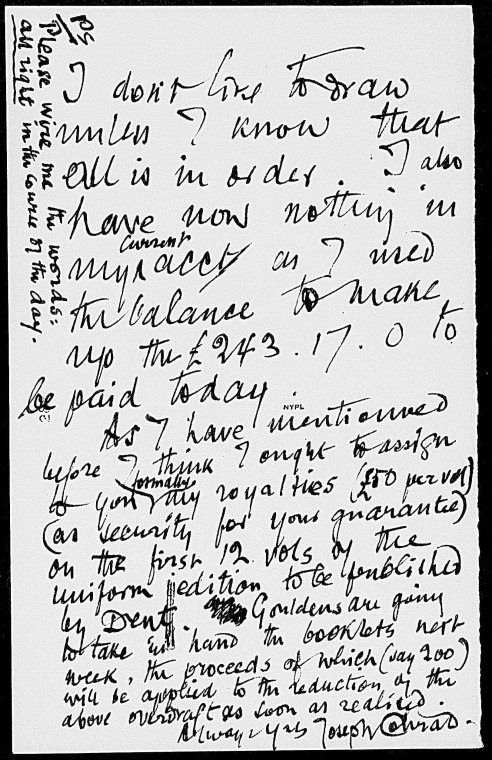 PS
Please wire me the words:
all right in the course of the day.
I don't like to draw
unless I know that
all is in order. I also
have now nothing in
my current acct as I used
the balance to make
up the £243.17.0 to
be paid today.
NYPL
As I have mentionned
before I think I ought to assign
to you formally my royalties (£50 per vol)
(as security for your guarantee)
on the first 12 vols of the
uniform edition to be published
by Dent. Gouldens are going
to take in hand the booklets next
week, the proceeds of which (say 200)
will be applied to the reduction of the
above overdraft as soon as realised.
Always Yrs Joseph Conrad.